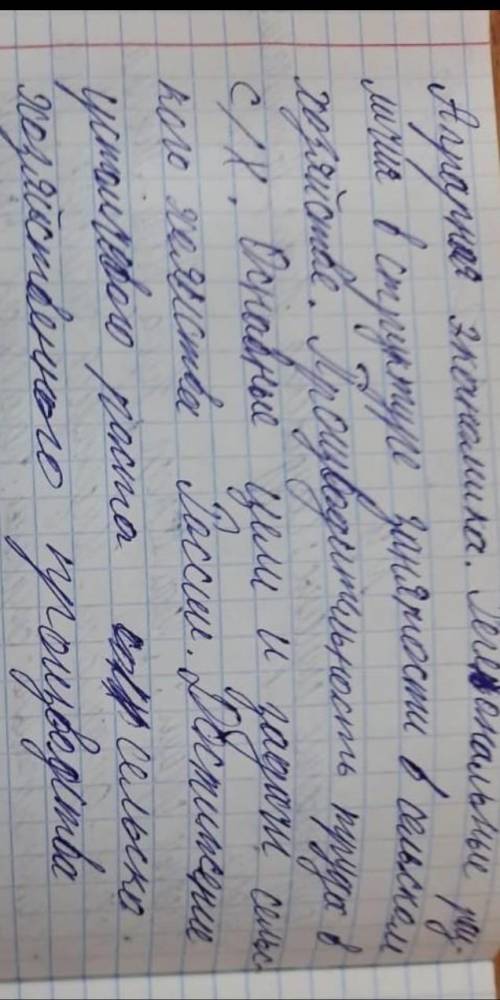 Аграрная экономика. Региональные раз-
личия в структуре занятости в сельском
хозяйстве. Производительность труда в
с/х. Основные цели и задачи сельс
кого хозяйства России. Достижение
устойчивого роста сельско
хозяйственного производства